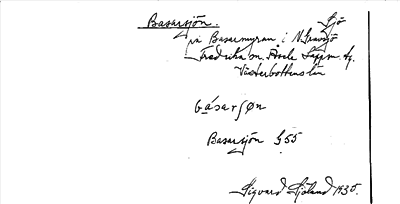 Basarsjön. Sjö
på Basarmyran i N. Gransjö
Fredrika sn. Åsele Lappm. tg.
Västerbottens län
básarʃøn
Basarsjön G 55
Sigvard Sjölund 1935.